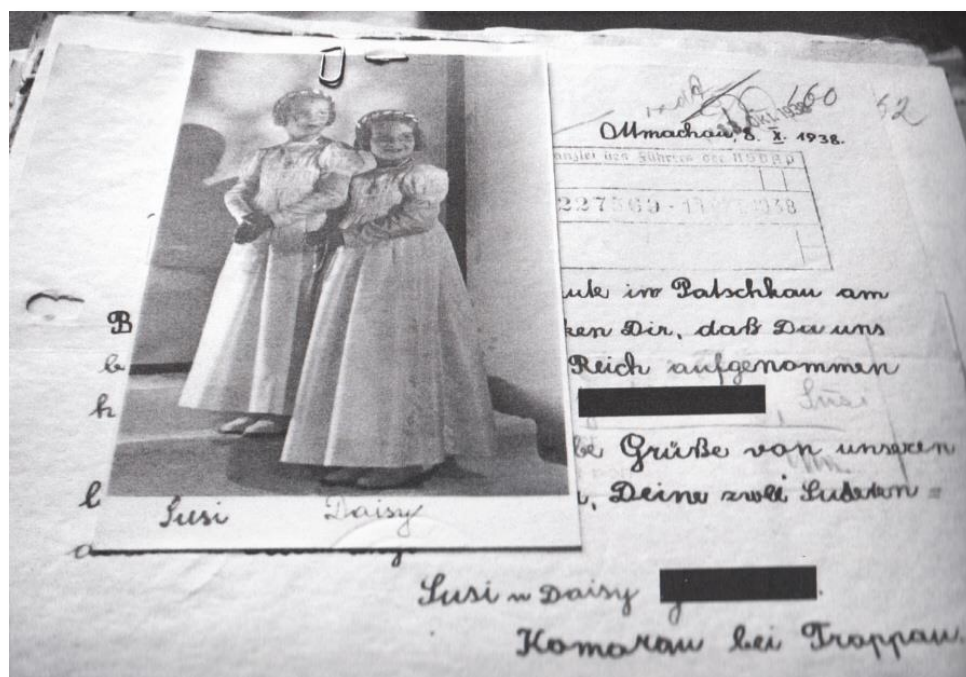 160 52
OKT. 1938
Ottmachau, 8. X. 1938.
Kanzlei des Führers der NSDAP
227569
1938
ute in Patschkau am
B ken Dir, daß Du uns
b Reich aufgenommen
h , Susi
be Grüße von unseren
l , Deine zwei Sudeten =
Susi Daisy
a
Susi u Daisy
Komorau bei Troppau.